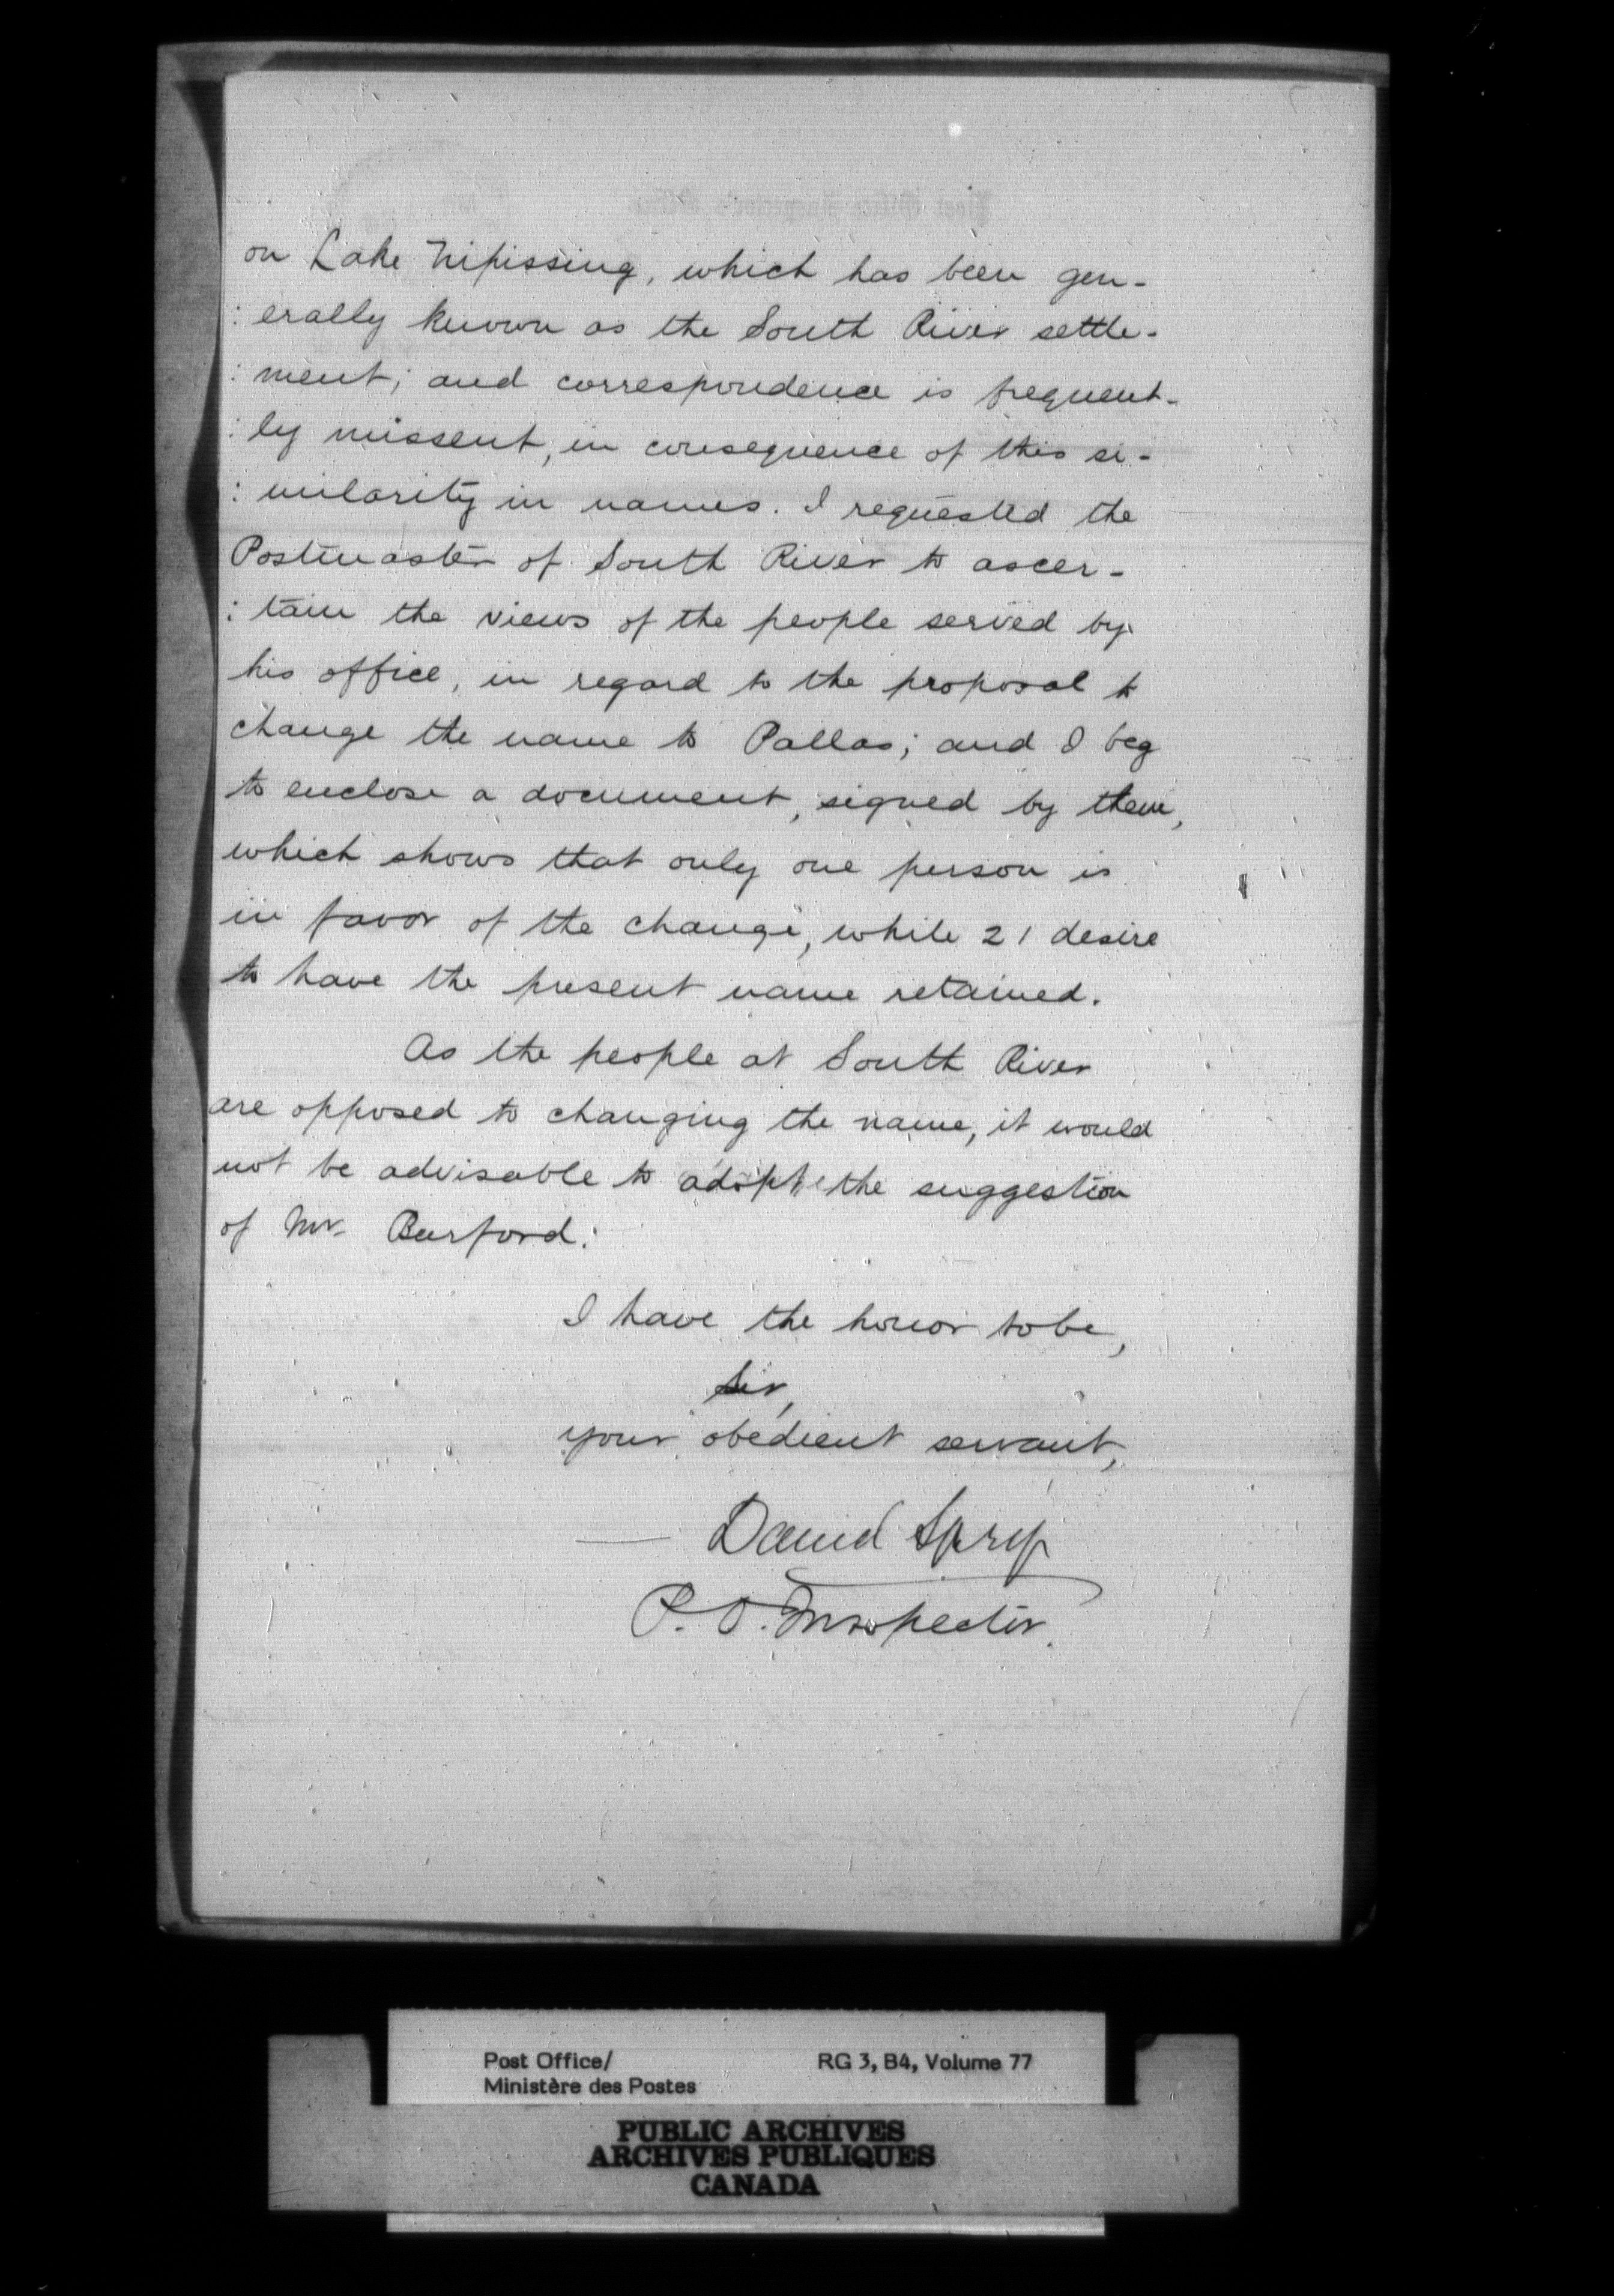 on Lake Nipissing, which has been gen-
: erally known as the South River settle-
: ment; and correspondence is frequent-
: ly missent, in consequence of this si-
: milarity in names. I requested the
Postmaster of South River to ascer-
: tain the views of the people served by
his office, in regard to the proposal to
change the name to Pallas; and I beg
to enclose a document, signed by them,
which shows that only one person is
in favor of the change, while 21 desire
to have the present name retained.
As the people at South River
are opposed to changing the name, it would
not be advisable to adopt the suggestion
of Mr. Burford.
I have the honor to be,
Sir,
your obedient servant,
David Spry
P. O. Inspector.
Post Office/ RG 3, B4, Volume 77
Ministère des Postes
PUBLIC ARCHIVES
ARCHIVES PUBLIQUES
CANADA